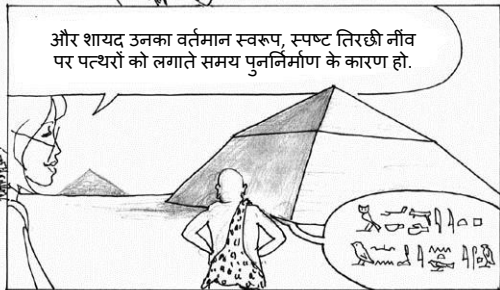 और शायद उनका वर्तमान स्वरूप, स्पष्ट तिरछी नींव
पर पत्थरों को लगाते समय पुनर्निर्माण के कारण हो.